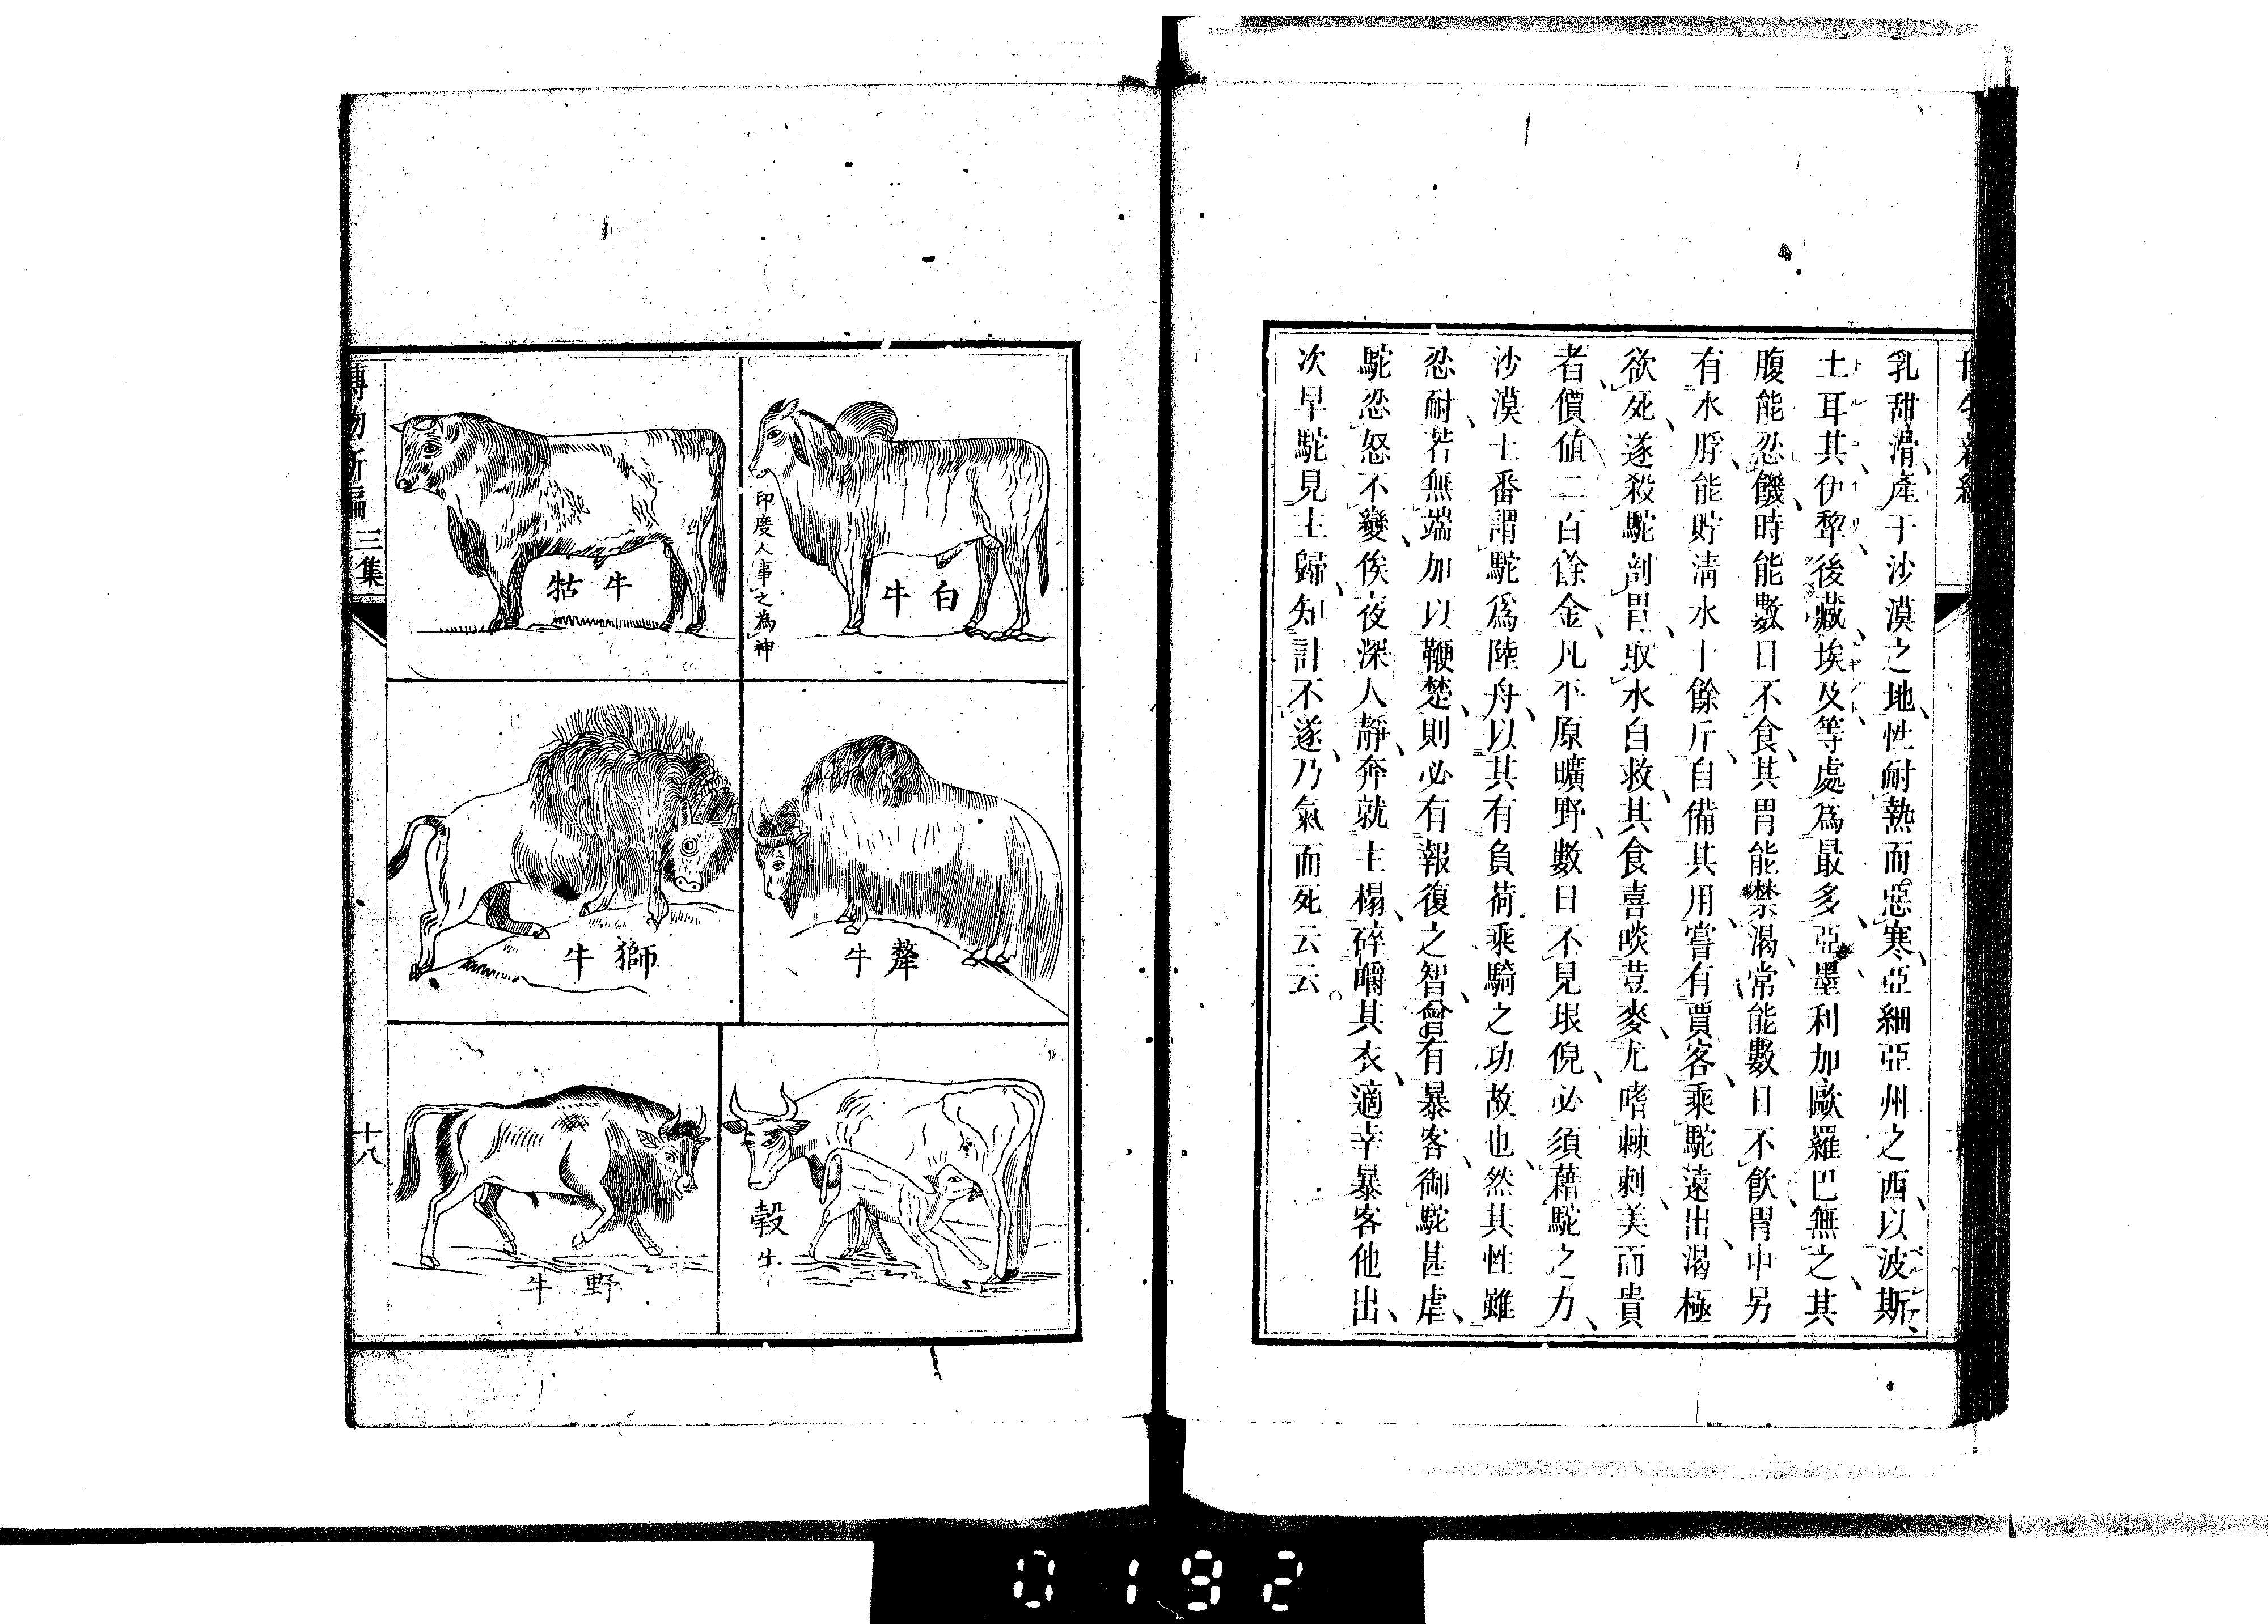 乳甜滑、產于沙漠之地、性耐熱而惡寒、亞細亞州之西、以波斯、
土耳其、伊犂、後藏、埃及等處為最多、亞墨利加歐羅巴無之、其
腹能忍饑、時能數日不食、其胃能禁渴、常能數日不飲、胃中另
有水脬、能貯淸水十餘斤、自備其用、嘗有賈客、乘駝遠出、渴極
欲死、遂殺駝剖胃、取水自救、其食喜啖荳麥、尤嗜棘刺、美而貴
者、價値二百餘金、凡平原曠野、數日不見垠倪、必須藉駝之力、
沙漠土番謂駝爲陸舟、以其有負荷乘騎之功故也、然其性雖
忍耐、若無端加以鞭楚、則必有報復之智、曾有暴客、御駝甚虐、
駝忿怒不變、俟夜深人靜、奔就主榻、碎嚼其衣、適幸暴客他出、
次早駝見主歸、知計不遂、乃氣而死云云。
白牛
印度人事之為神
牯牛
犛牛
獅牛
㝅牛
野牛
博物新編 三集
十八
0192